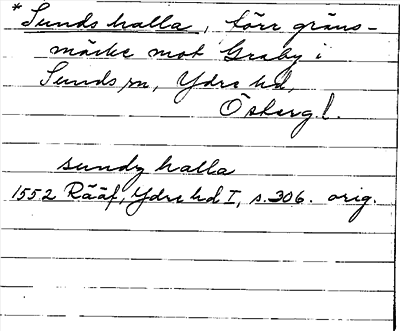 *Sundshalla, förr gräns-
märke mot Graby i
Sunds sn, Ydre hd,
Östergl.
sundz halla
1552 Rääf, Ydre hd I, s. 306. orig.